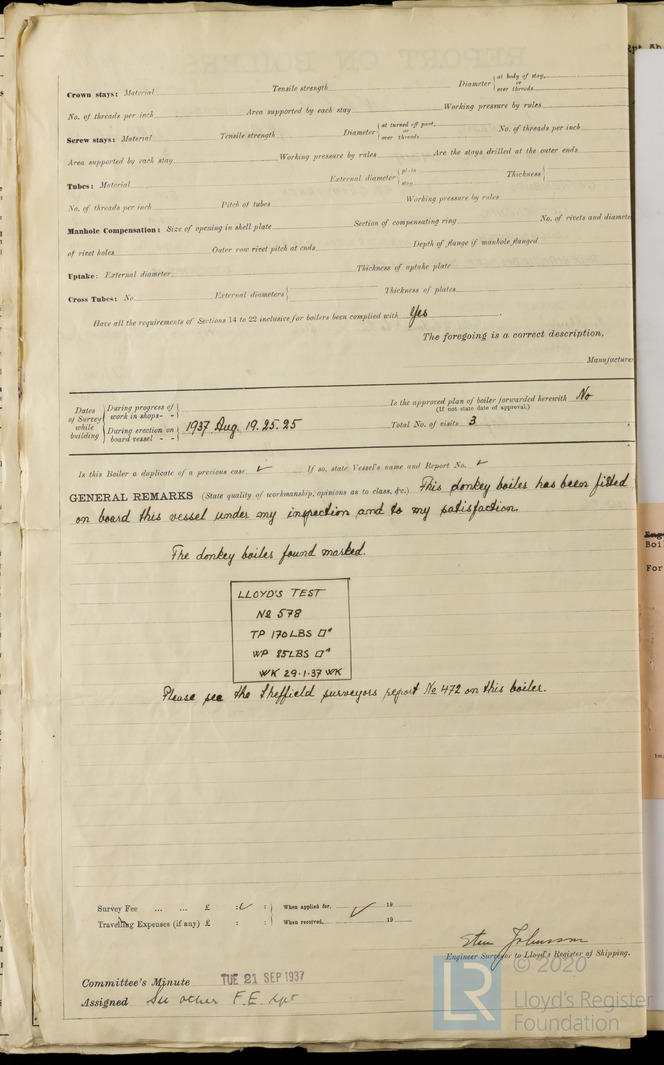 Crown stays: Material Tensile strength Diameter { at body of stay, or over threads
No. of threads per inch Area supported by each stay Working pressure by rules
Screw stays: Material Tensile strength Diameter { at turned off part, or over threads No. of threads per inch
Area supported by each stay Working pressure by rules Are the stays drilled at the outer ends
Tubes: Material External diameter { plain stay Thickness {
No. of threads per inch Pitch of tubes Working pressure by rules
Manhole Compensation: Size of opening in shell plate Section of compensating ring No. of rivets and diamete
of rivet holes Outer row rivet pitch at ends Depth of flange if manhole flanged
Uptake: External diameter Thickness of uptake plate
Cross Tubes: No. External diameters { Thickness of plates
Have all the requirements of Sections 14 to 22 inclusive for boilers been complied with Yes
The foregoing is a correct description,
Manufacture
Dates of Survey while building { During progress of work in shops - - { Is the approved plan of boiler forwarded herewith No
(If not state date of approval.)
During erection on board vessel - - { 1937 Aug. 19. 25. 25 Total No. of visits 3
Is this Boiler a duplicate of a previous case ✓ If so, state Vessel's name and Report No. ✓
GENERAL REMARKS (State quality of workmanship, opinions as to class, &c.) This donkey boiler has been fitted
on board this vessel under my inspection and to my satisfaction.
The donkey boiler found marked.
LLOYD'S TEST
No 578
TP 170 LBS □"
WP 85 LBS □"
WK 29.1.37 WK
Please see the Sheffield surveyors report No 472 on this boiler.
Survey Fee ... ... £ : ✓ : } When applied for, ✓ 19
Travelling Expenses (if any) £ : : } When received, 19
Sten Johnsson
Engineer Surveyor to Lloyd's Register of Shipping.
Committee's Minute TUE 21 SEP 1937
Assigned See other F.E. rpt
LR
© 2020
Lloyd's Register
Foundation
Boi
For